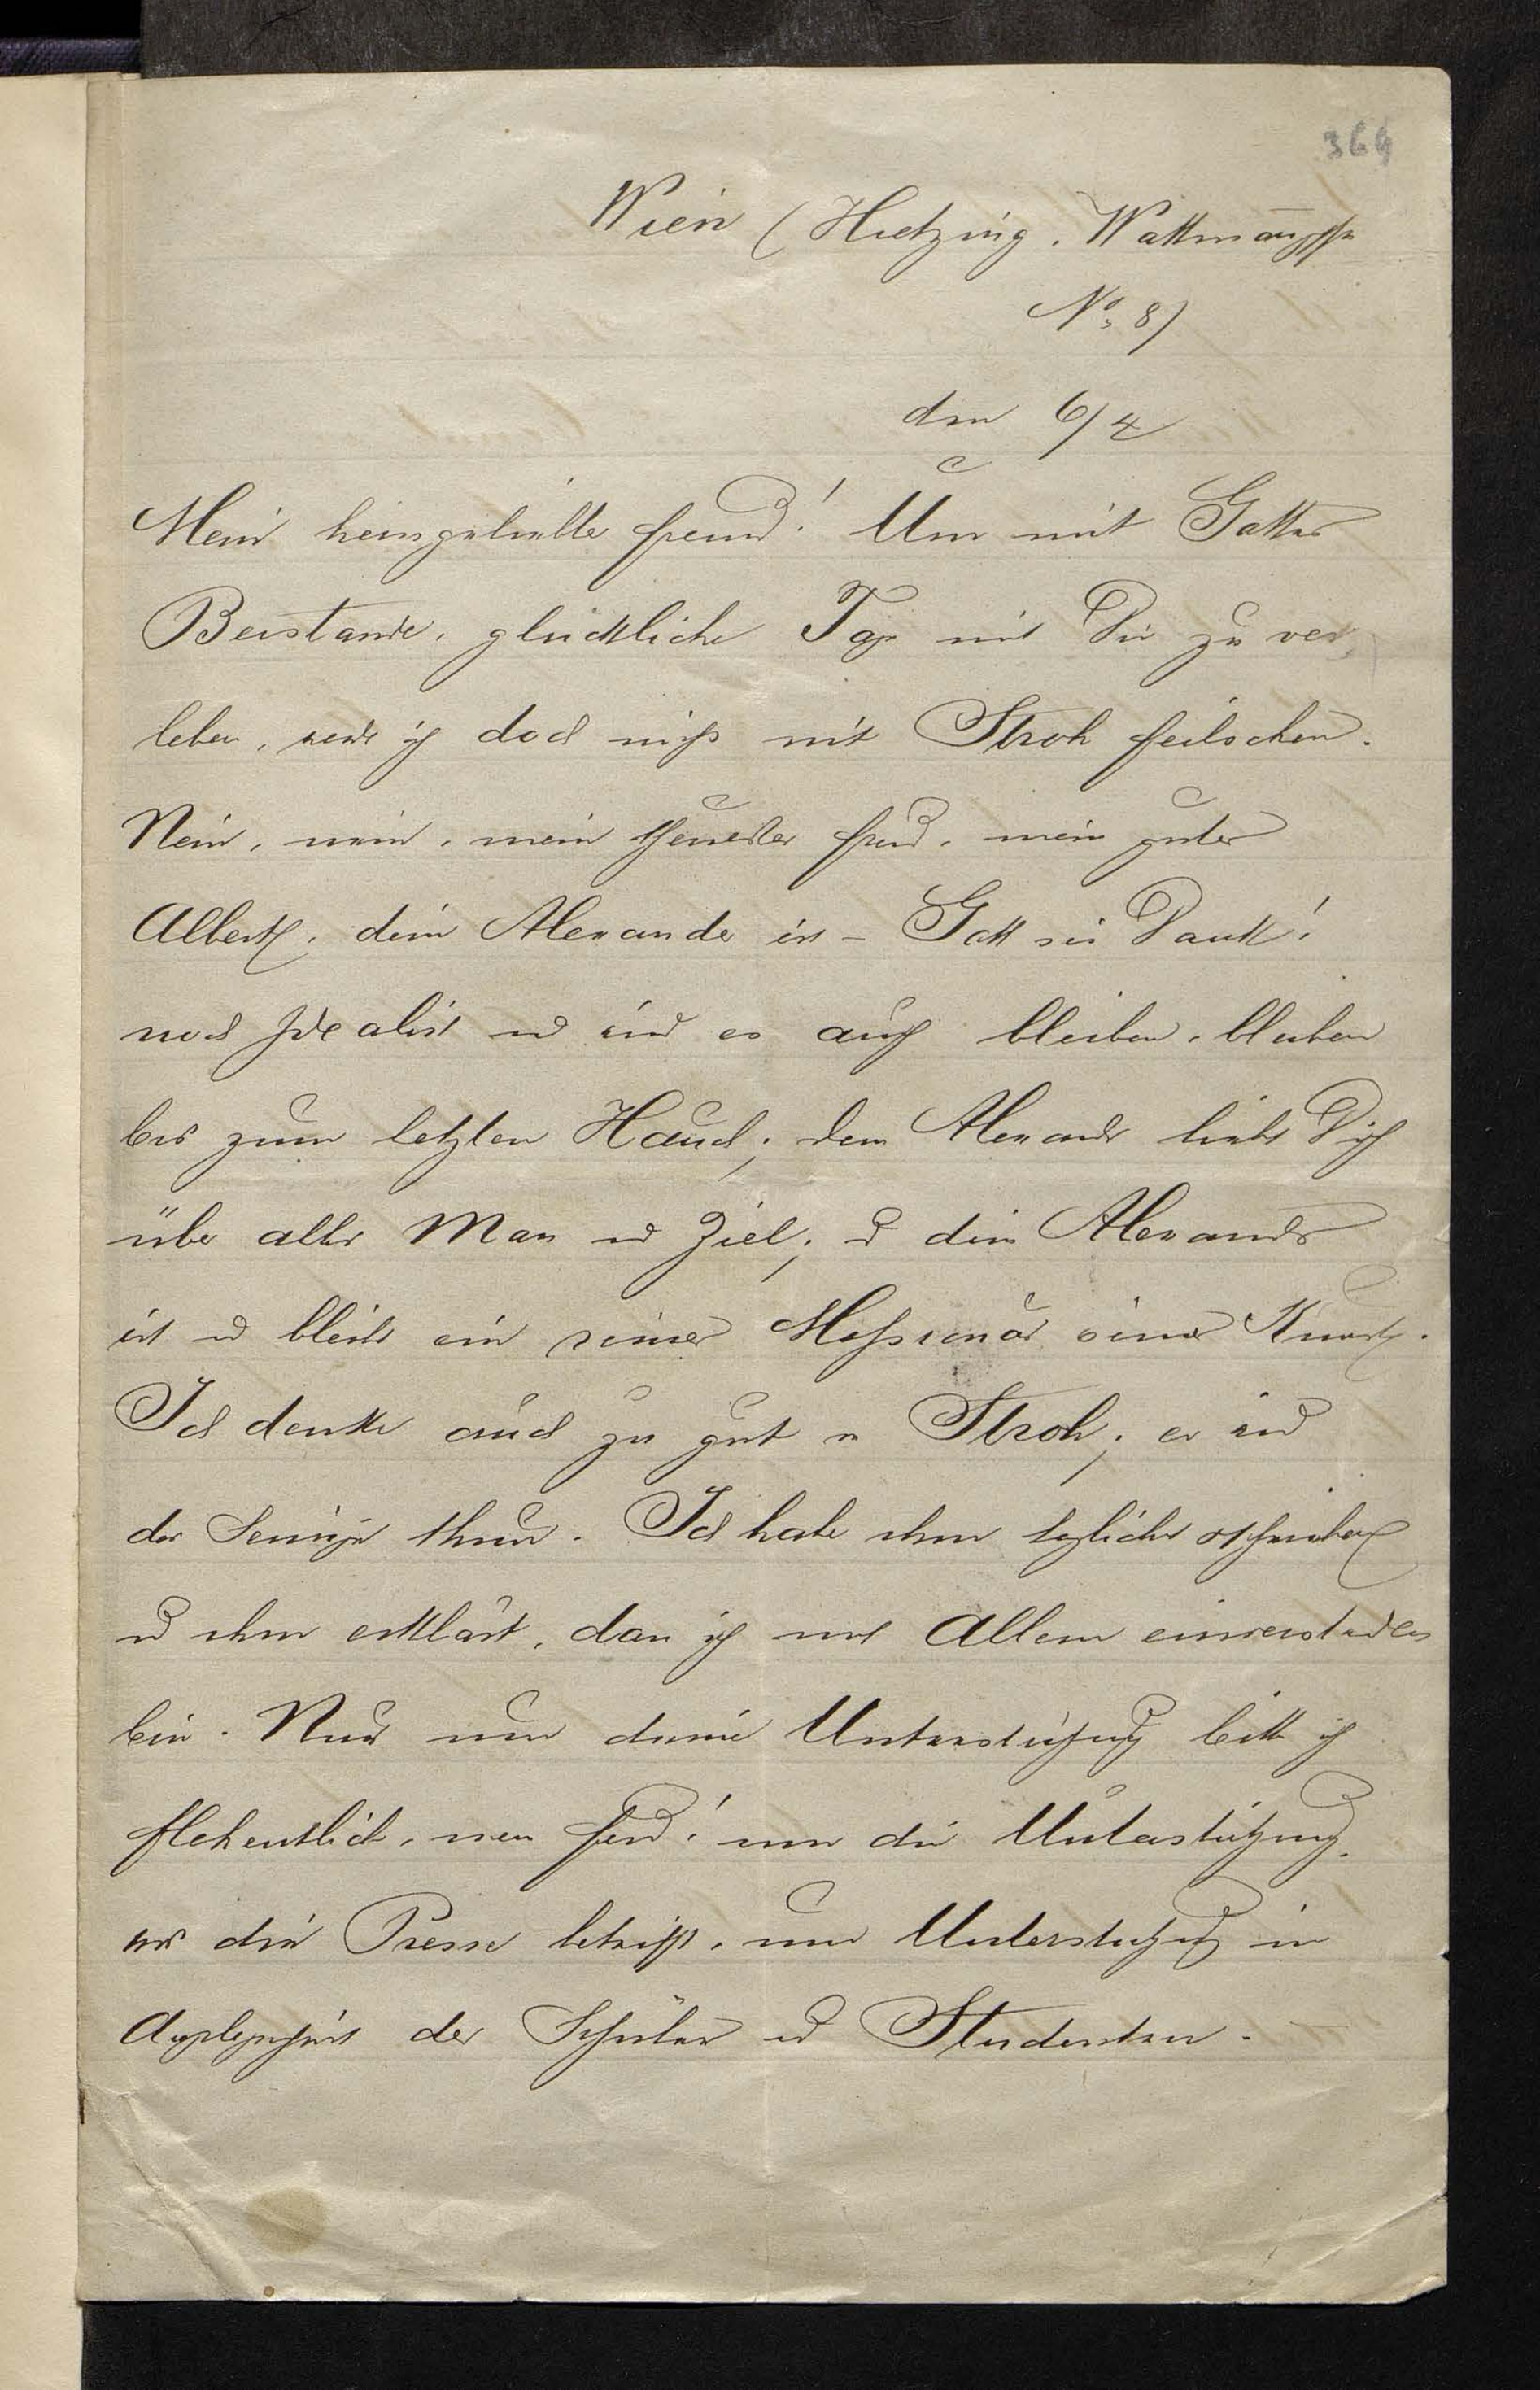 364
Wien (Hietzing. Wattmanngasse
No. 8)
den 6/4
Mein heissgeliebter Freund! Um mit Gottes
Beistande, glückliche Tage mit Dir zu ver
leben, werde ich doch nicht mit Stroh feilschen.
Nein, nein, mein theuerster Freund, mein guter
Albert, dein Alexander ist - Gott sei Dank!
noch Idealist und wird es auch bleiben, bleiben
bis zum letzten Hauch; dein Alexander liebt Dich
über alles Mass und Ziel; und dein Alexander
ist und bleibt ein reiner Missionär seiner Kunst.
Ich denke auch zu gut v Stroh; er wird
das Seinige thun. Ich habe ihm geschrieben
und ihm erklärt, dass ich mit Allem einverstanden
bin. Nur um deine Unterstützung bitte ich
flehentlich, mein Freund! um die Unterstützung,
was die Presse betrifft, um Unterstützung in
Angelegenheit der Schüler und Studenten.